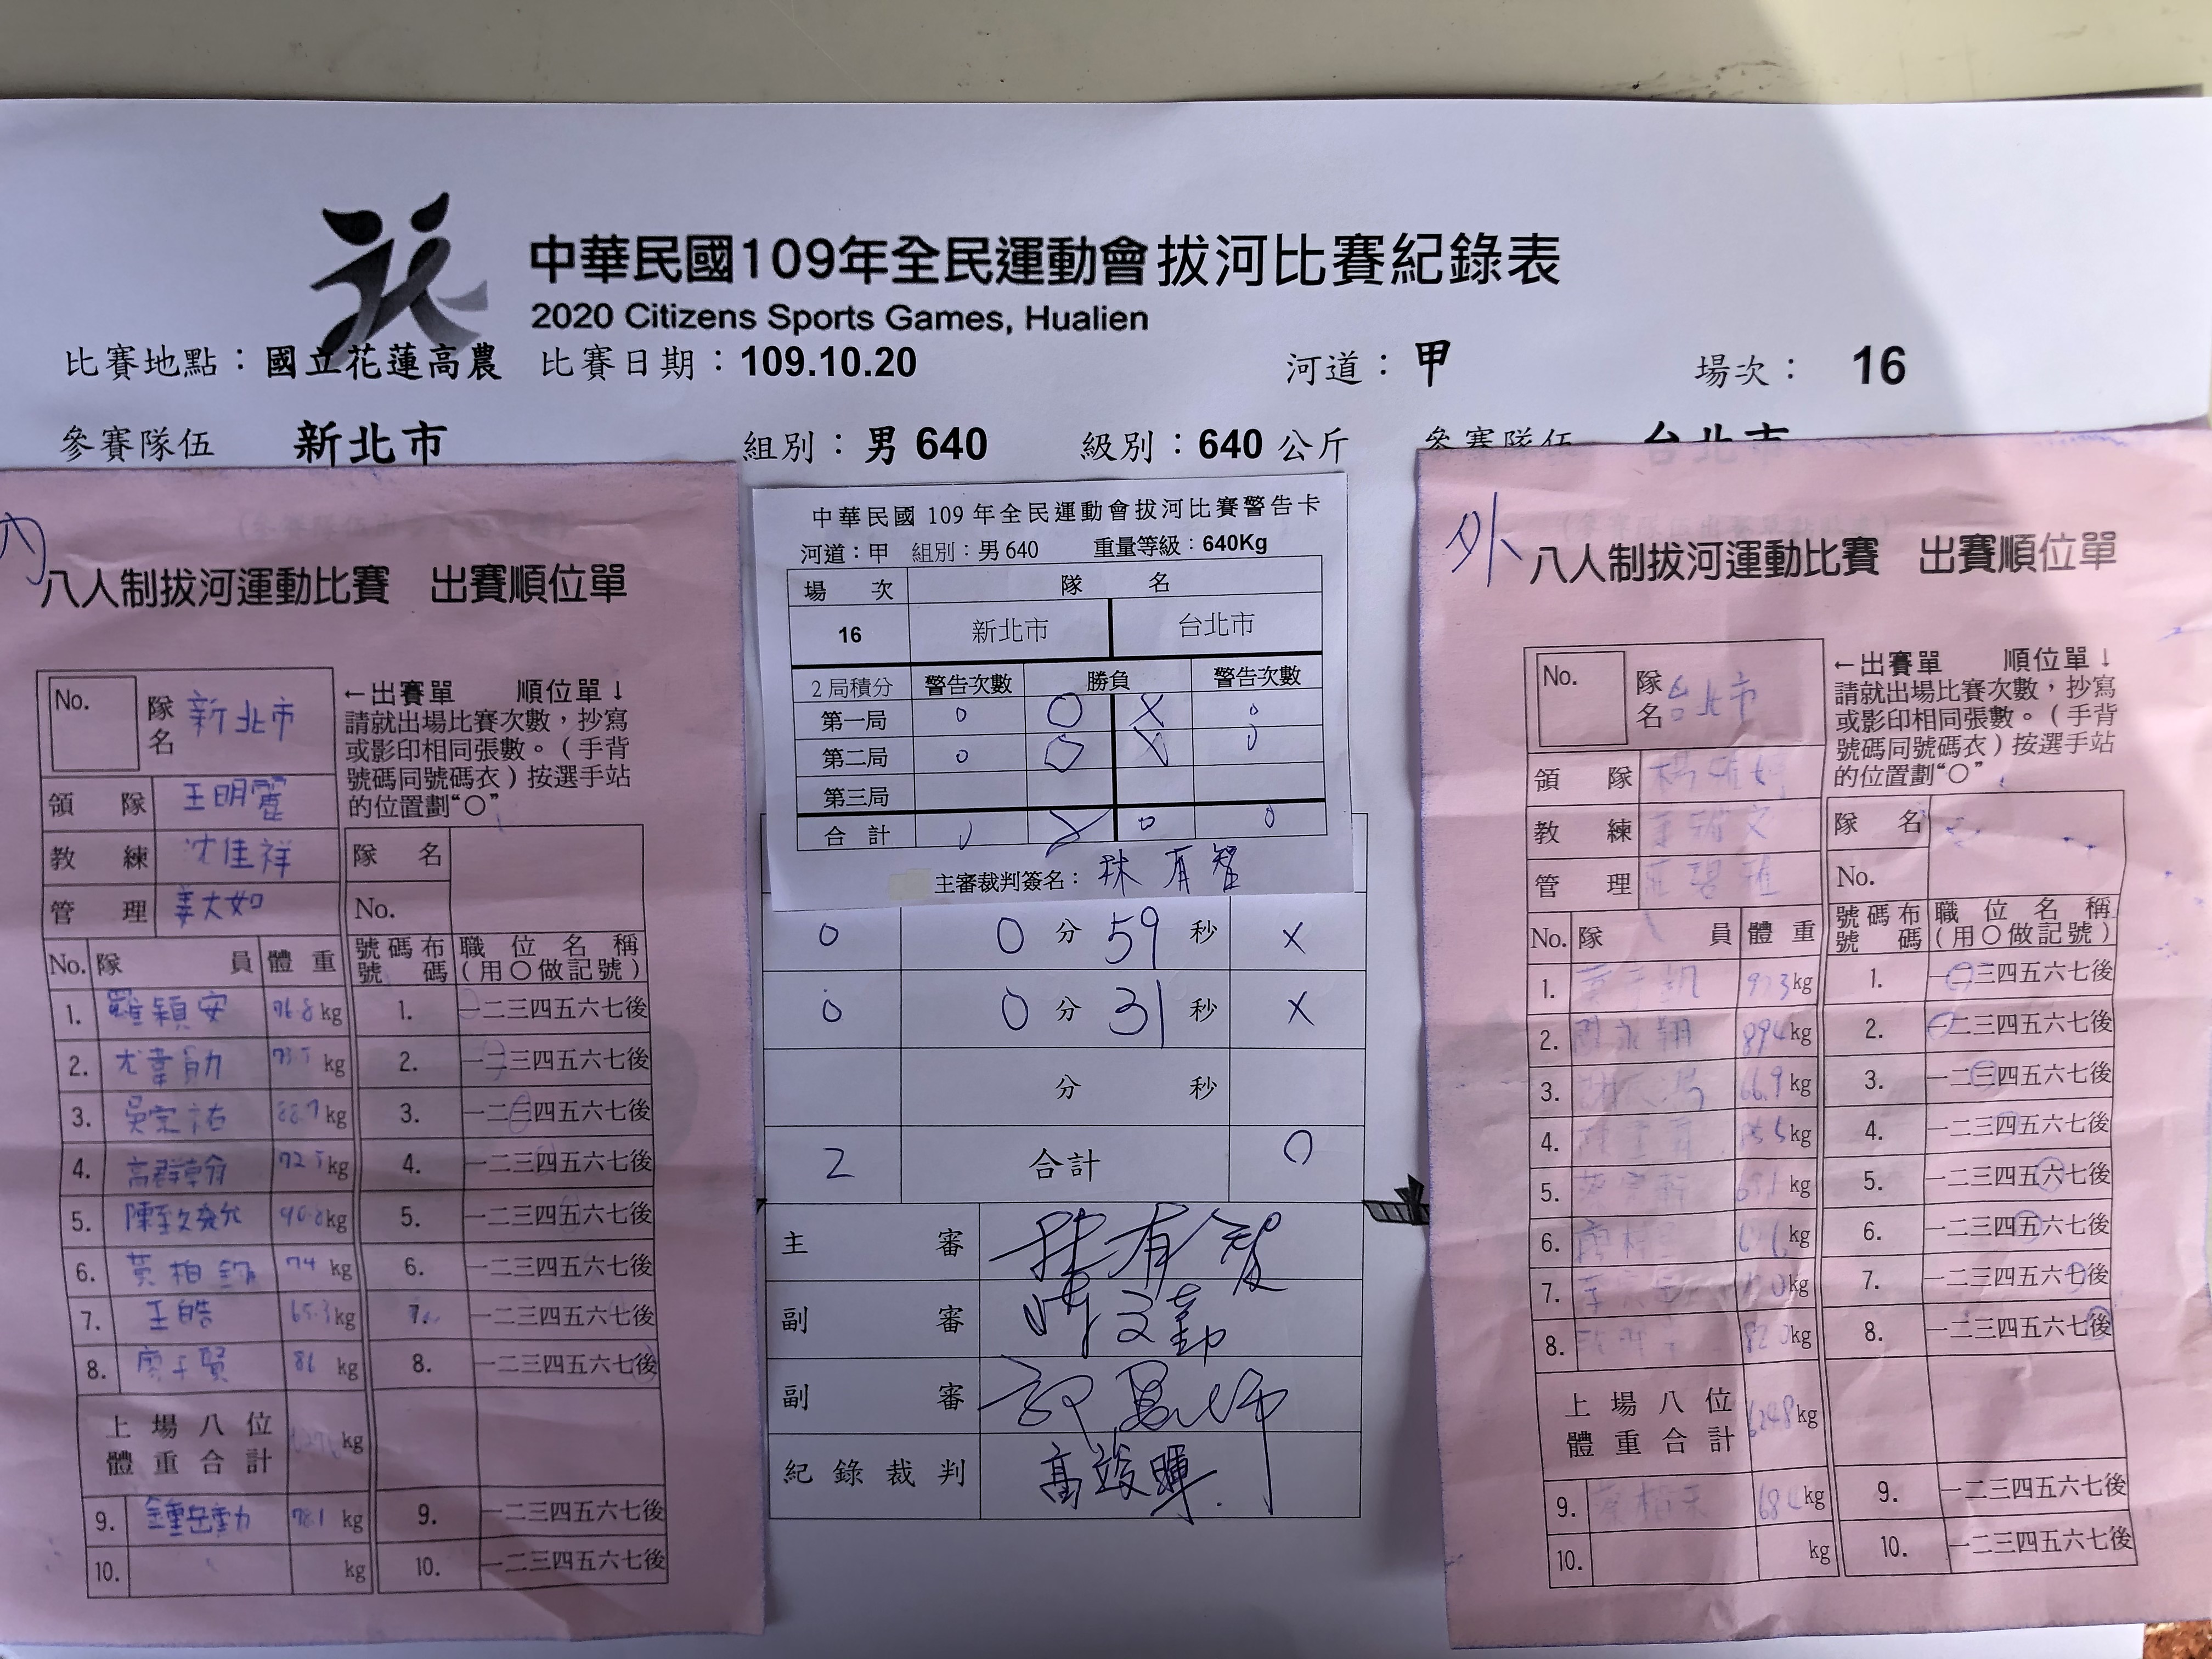 中華民國109年全民運動會拔河比賽紀錄表
2020 Citizens Sports Games, Hualien
比賽地點：國立花蓮高農 比賽日期：109.10.20 河道：甲 場次： 16
參賽隊伍 新北市 組別：男 640 級別：640 公斤 參賽隊伍 台北市
內
八人制拔河運動比賽 出賽順位單
No. 隊名 新北市
←出賽單 順位單↓
請就出場比賽次數，抄寫
或影印相同張數。（手背
號碼同號碼衣）按選手站
的位置劃“○”
領隊 王明霞
教練 沈佳祥
管理 姜大如
隊名
No.
No. 隊員 體重 號碼布號碼 職位名稱（用○做記號）
1. 羅穎安 kg 1. 一二三四五六七後
2. kg 2. 一二三四五六七後
3. 吳宗祐 kg 3. 一二三四五六七後
4. 高群翰 kg 4. 一二三四五六七後
5. kg 5. 一二三四五六七後
6. 黃柏鈞 74 kg 6. 一二三四五六七後
7. 王皓 65.3 kg 7. 一二三四五六七後
8. 86 kg 8. 一二三四五六七後
上場八位
體重合計 kg
9. 鍾岳勳 78.1 kg 9. 一二三四五六七後
10. kg 10. 一二三四五六七後
中華民國 109 年全民運動會拔河比賽警告卡
河道：甲 組別：男 640 重量等級：640Kg
場次 隊名
16 新北市 台北市
2局積分 警告次數 勝負 警告次數
第一局 0 O X 0
第二局 0 O X 0
第三局
合計 0 2 0 0
主審裁判簽名： 林有智
0 0 分 59 秒 X
0 0 分 31 秒 X
分 秒
2 合計 0
主審 林有智
副審
副審
紀錄裁判 高竣暉
外
八人制拔河運動比賽 出賽順位單
No. 隊名 台北市
←出賽單 順位單↓
請就出場比賽次數，抄寫
或影印相同張數。（手背
號碼同號碼衣）按選手站
的位置劃“○”
領隊
教練
管理
隊名
No.
No. 隊員 體重 號碼布號碼 職位名稱（用○做記號）
1. kg 1. 一二三四五六七後
2. 永翔 89.4 kg 2. 一二三四五六七後
3. 66.9 kg 3. 一二三四五六七後
4. kg 4. 一二三四五六七後
5. kg 5. 一二三四五六七後
6. kg 6. 一二三四五六七後
7. kg 7. 一二三四五六七後
8. 82.0 kg 8. 一二三四五六七後
上場八位
體重合計 624.8 kg
9. 68.4 kg 9. 一二三四五六七後
10. kg 10. 一二三四五六七後